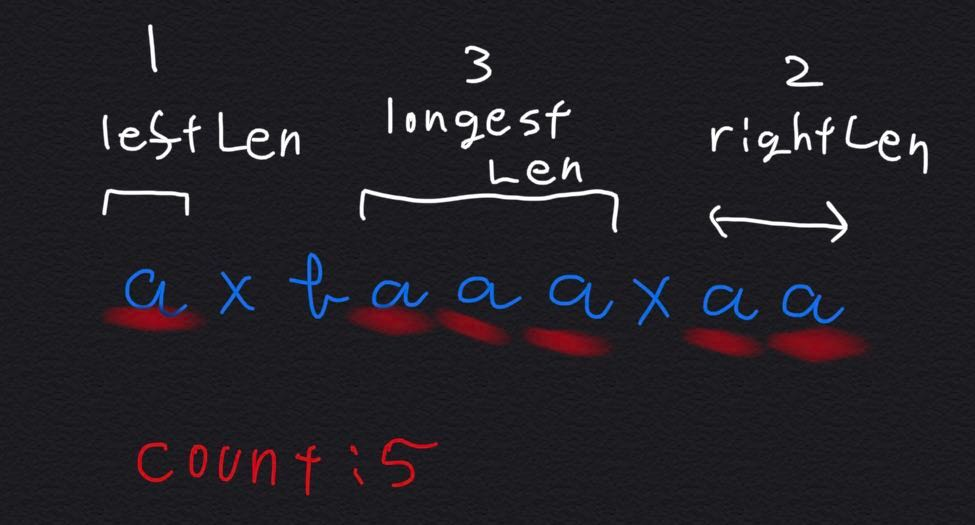 1 3 2
leftLen longest rightLen
Len
a x b a a a x a a
count:5